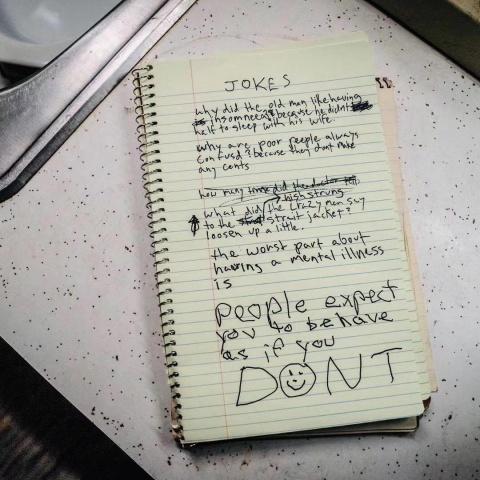 JOKES
why did the old man like having
insomneea? because he didnt
haft to sleep with his wife.
why are poor people always
confusd? because they dont make
any cents
how many times did the doctor
high strung
what did the crazy man say
to the strait jacket?
loosen up a little.
the worst part about
having a mental illness
is
people expect
you to behave
as if you
DONT